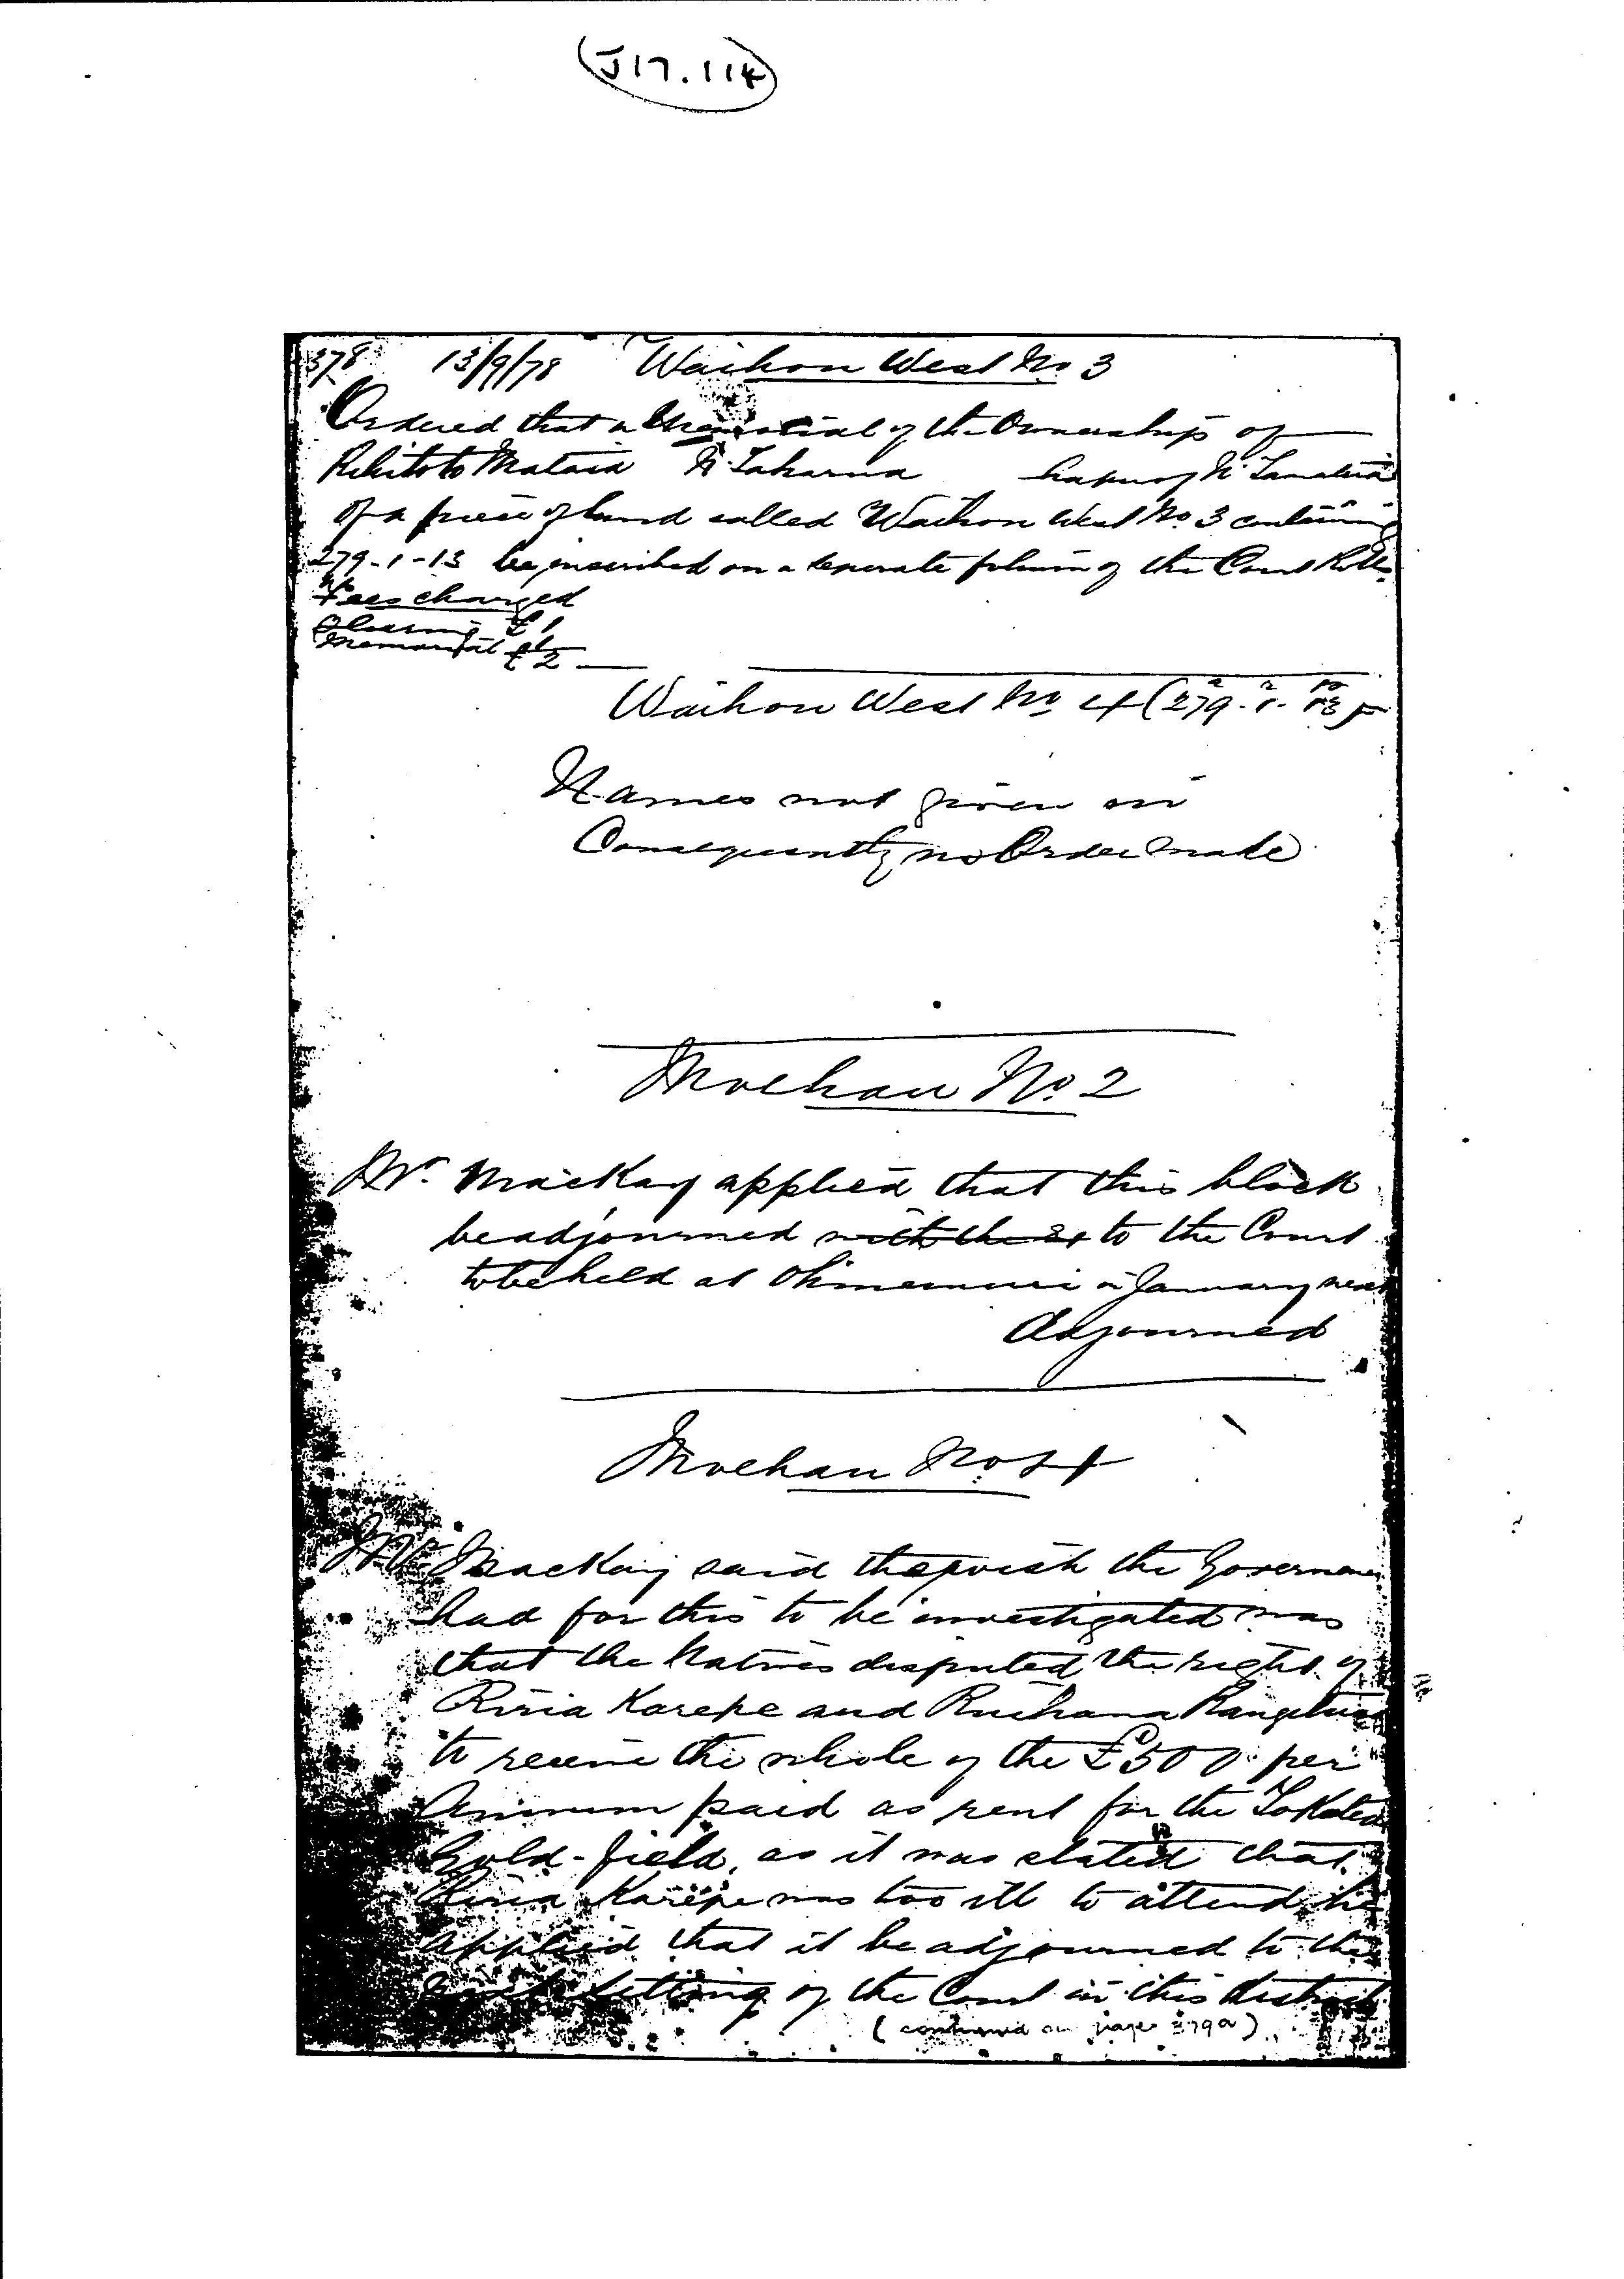 J17.114
378 13/9/78 Waihou West No 3
Ordered that a Memorial of the Ownership of
N Tahauna hapu of N. Tamatera
of a piece of land called Waihou West No. 3 containing
279-1-13 be inscribed on a separate folium of the Court Rolls
Fees charged
Hearing £1
Memorial £1
£2
Waihou West No 4 (279-1-13)
Names not given in
Consequently no Order made
Moehau No. 2
Mr. MacKay applied that this block
be adjourned to the Court
to be held at Ohinemuri in January next
Adjourned
Moehau No. 4
Mr MacKay said the wish the Government
had for this to be investigated was
that the Natives disputed the right of
Riria Karepe and Ruihana Rangituia
to receive the whole of the £500 per
Annum paid as rent for the Tokatea
Gold-field, as it was stated that
Riria Karepe was too ill to attend he
applied that it be adjourned to the
next sitting of the Court in this district
(continued on page 379a)